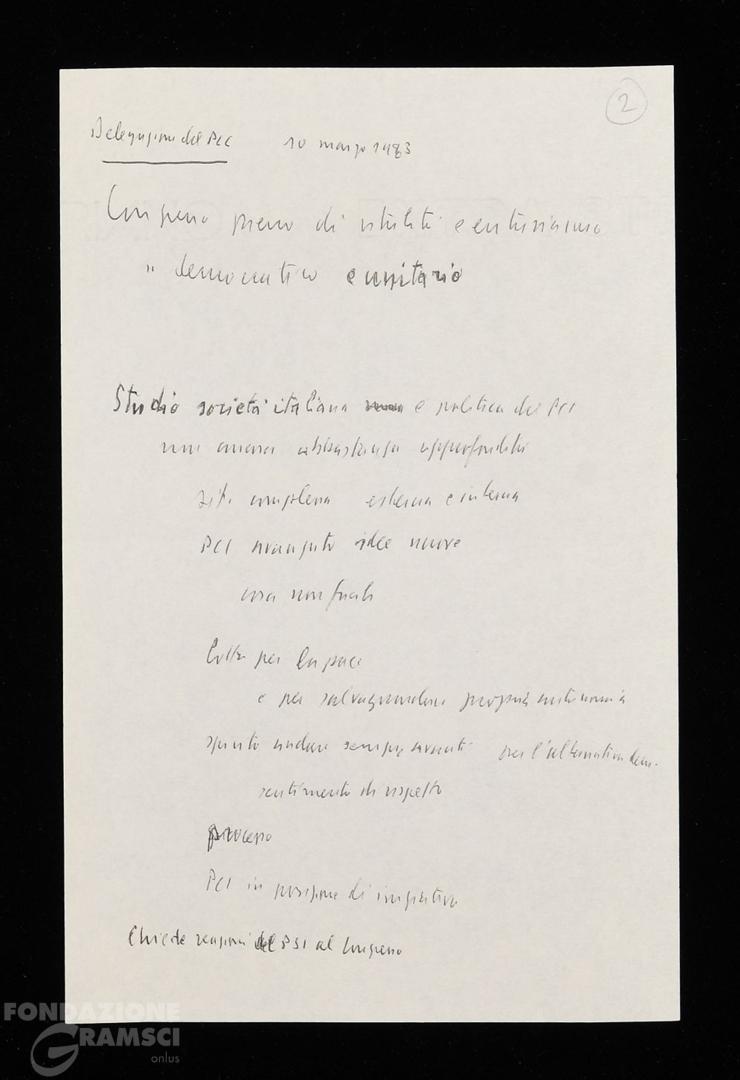 2
Delegazione del PCC 10 marzo 1983
Congresso pieno di vitalità e entusiasmo
" democratico e unitario
Studio società italiana e politica del PCI
non ancora abbastanza approfondito
sit. complessa esterna e interna
PCI avanzato idee nuove
cosa non facile
Lotta per la pace
e per salvaguardare propria autonomia
spinto andare sempre avanti per l'alternativa dem.
sentimento di rispetto
processo
PCI in posizione di iniziativa
Chiede reazioni del PSI al Congresso
FONDAZIONE
GRAMSCI
onlus